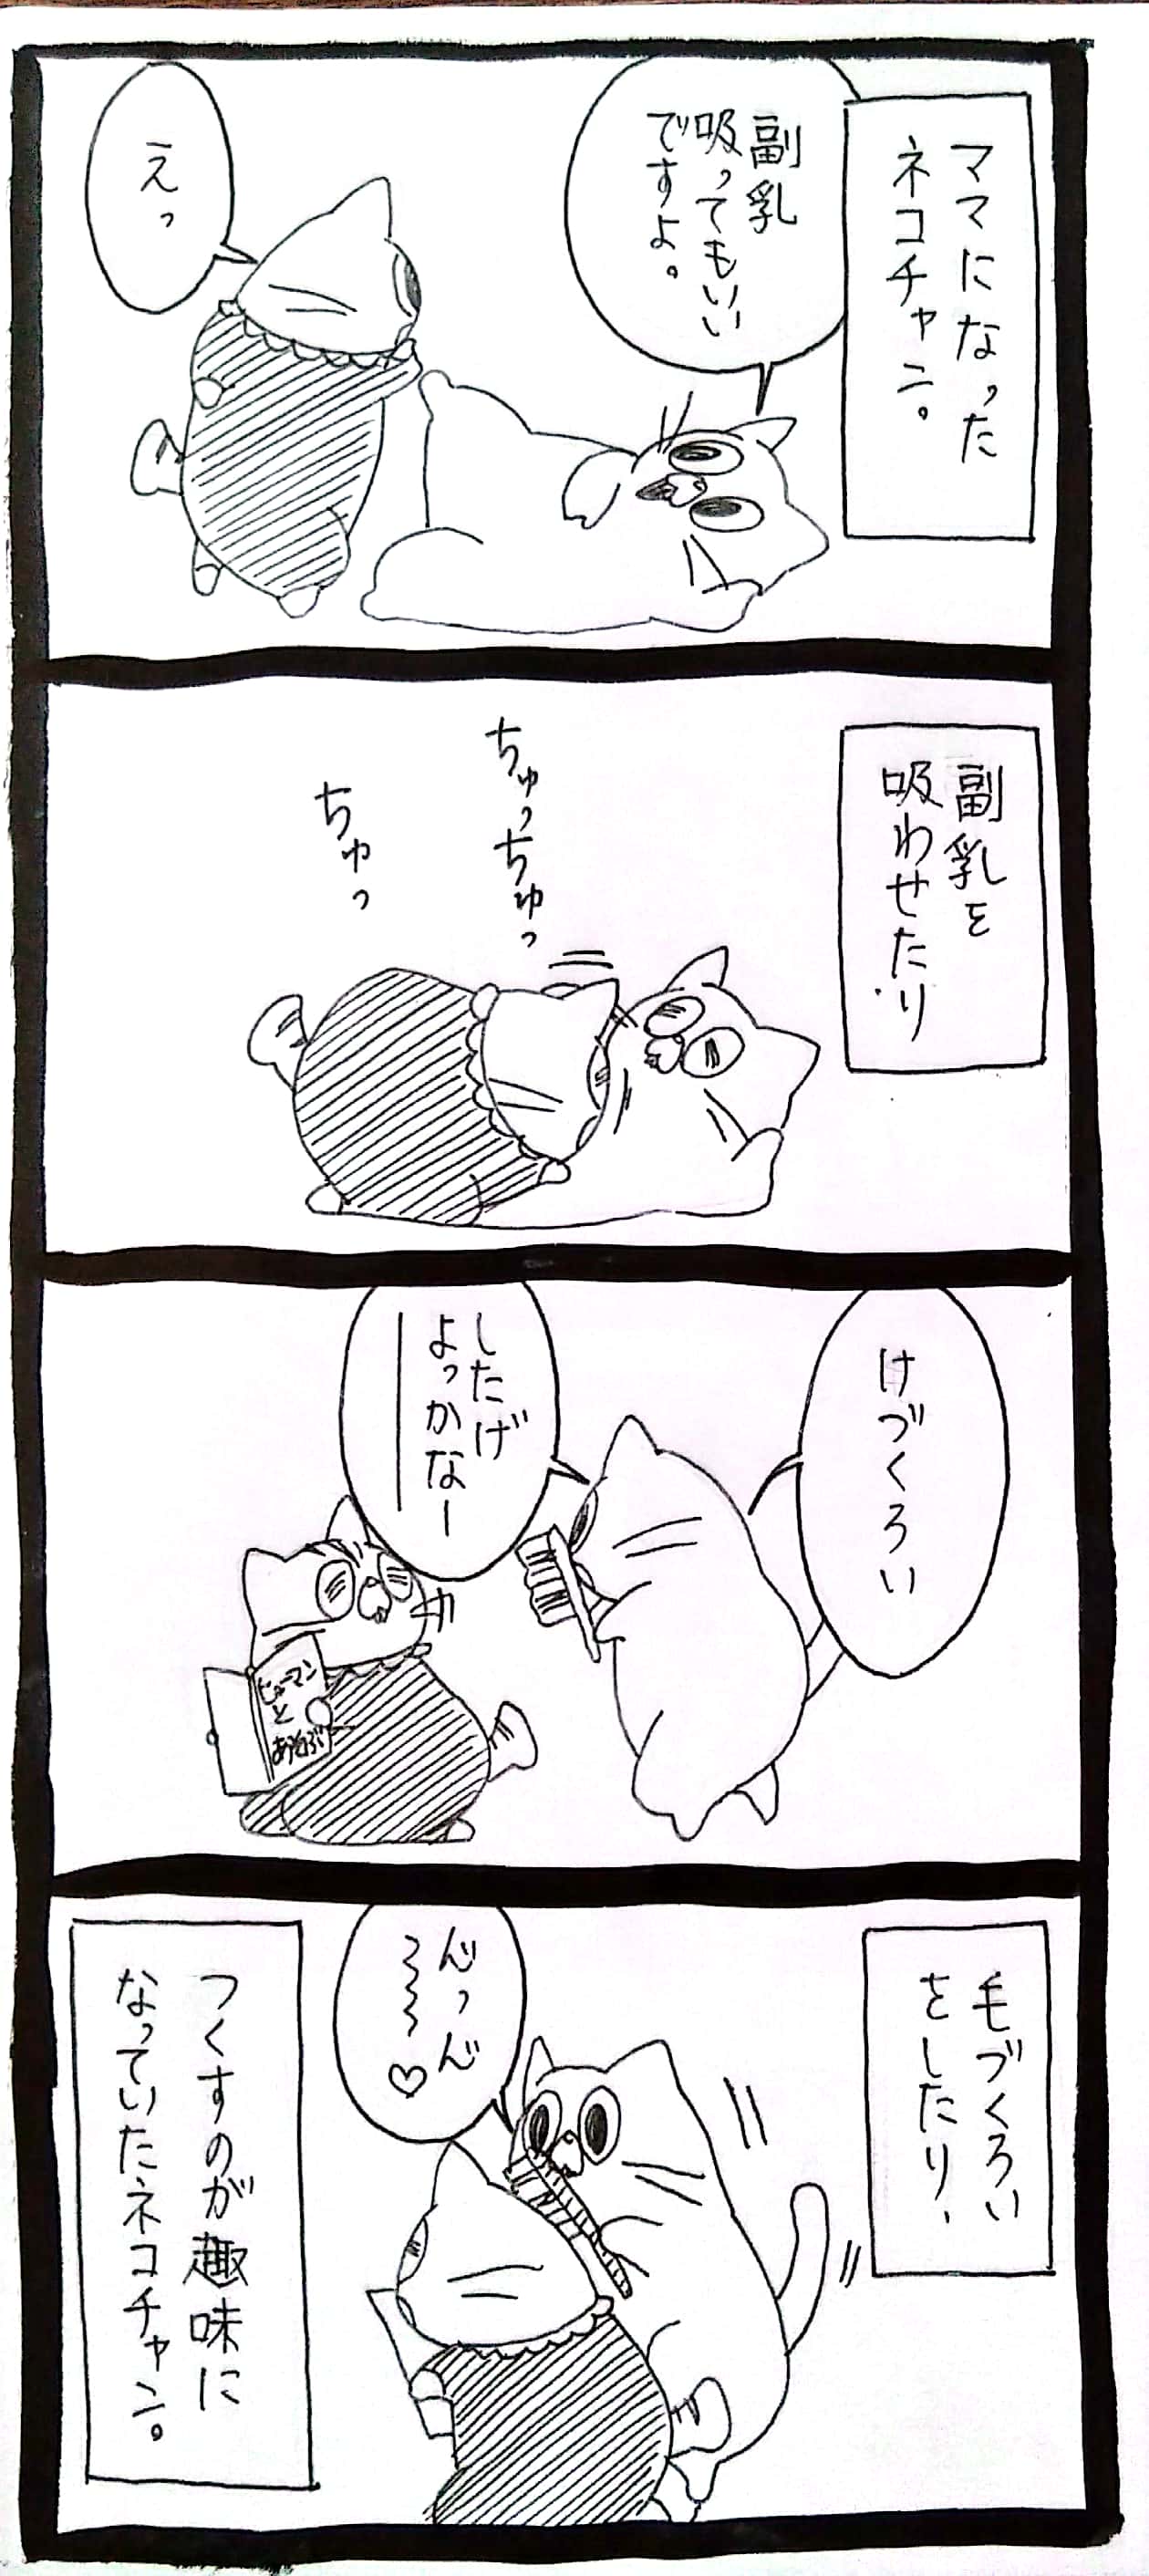 ママになった
ネコチャン。
副乳
吸ってもいい
ですよ。
えっ
副乳を
吸わせたり
ちゅっちゅっ
ちゅっ
けづくろい
したげ
よっかなー
ヒューマン
と
あそぶ
毛づくろい
をしたり、
んっん
〜〜〜♡
つくすのが趣味に
なっていたネコチャン。